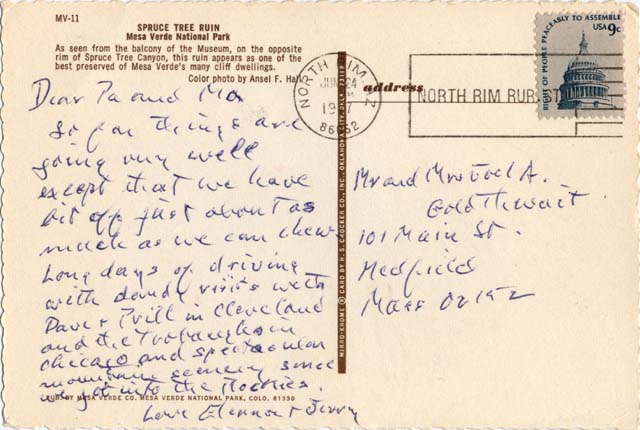 MV-11
SPRUCE TREE RUIN
Mesa Verde National Park
As seen from the balcony of the Museum, on the opposite
rim of Spruce Tree Canyon, this ruin appears as one of the
best preserved of Mesa Verde's many cliff dwellings.
Color photo by Ansel F. Hall
Dear Pa and Ma
So far things are
going very well
except that we have
bit off just about as
much as we can chew
Long days of driving
with dandy visits with
Dave + in Cleveland
and the in
Chicago and spectacular
mountain scenery since
we got into the Rockies.
Love Eleanor + Jerry
PUB. BY MESA VERDE CO. MESA VERDE NATIONAL PARK, COLO. 81330
MIRRO-KROME ® CARD BY H. S. CROCKER CO., INC., OKLAHOMA CITY, OKLA.
address
NORTH RIM
24
86052
NORTH RIM RUR ST
RIGHT OF PEOPLE PEACEABLY TO ASSEMBLE
USA 9c
Mr and Mrs Joel A.
Goldthwait
101 Main St.
Medfield
Mass 02052